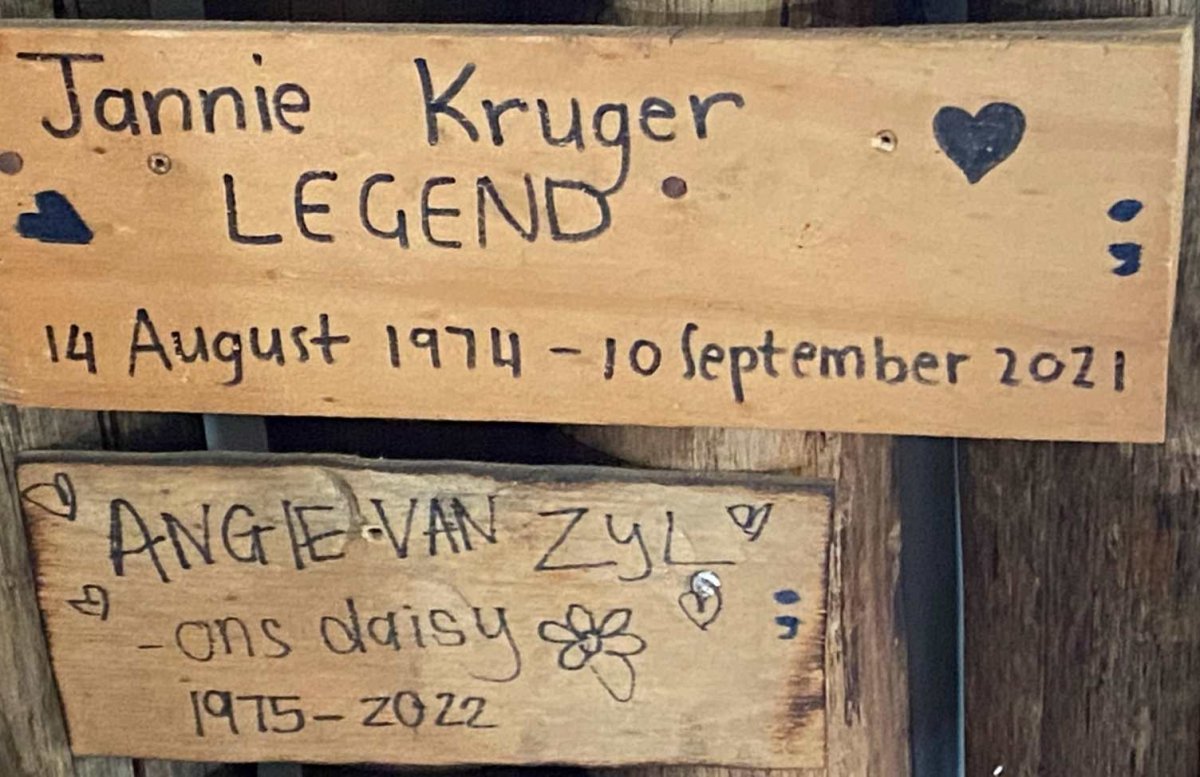 Jannie Kruger
LEGEND
;
14 August 1974 - 10 September 2021
ANGIE VAN ZyL
- ons daisy
;
1975 - 2022